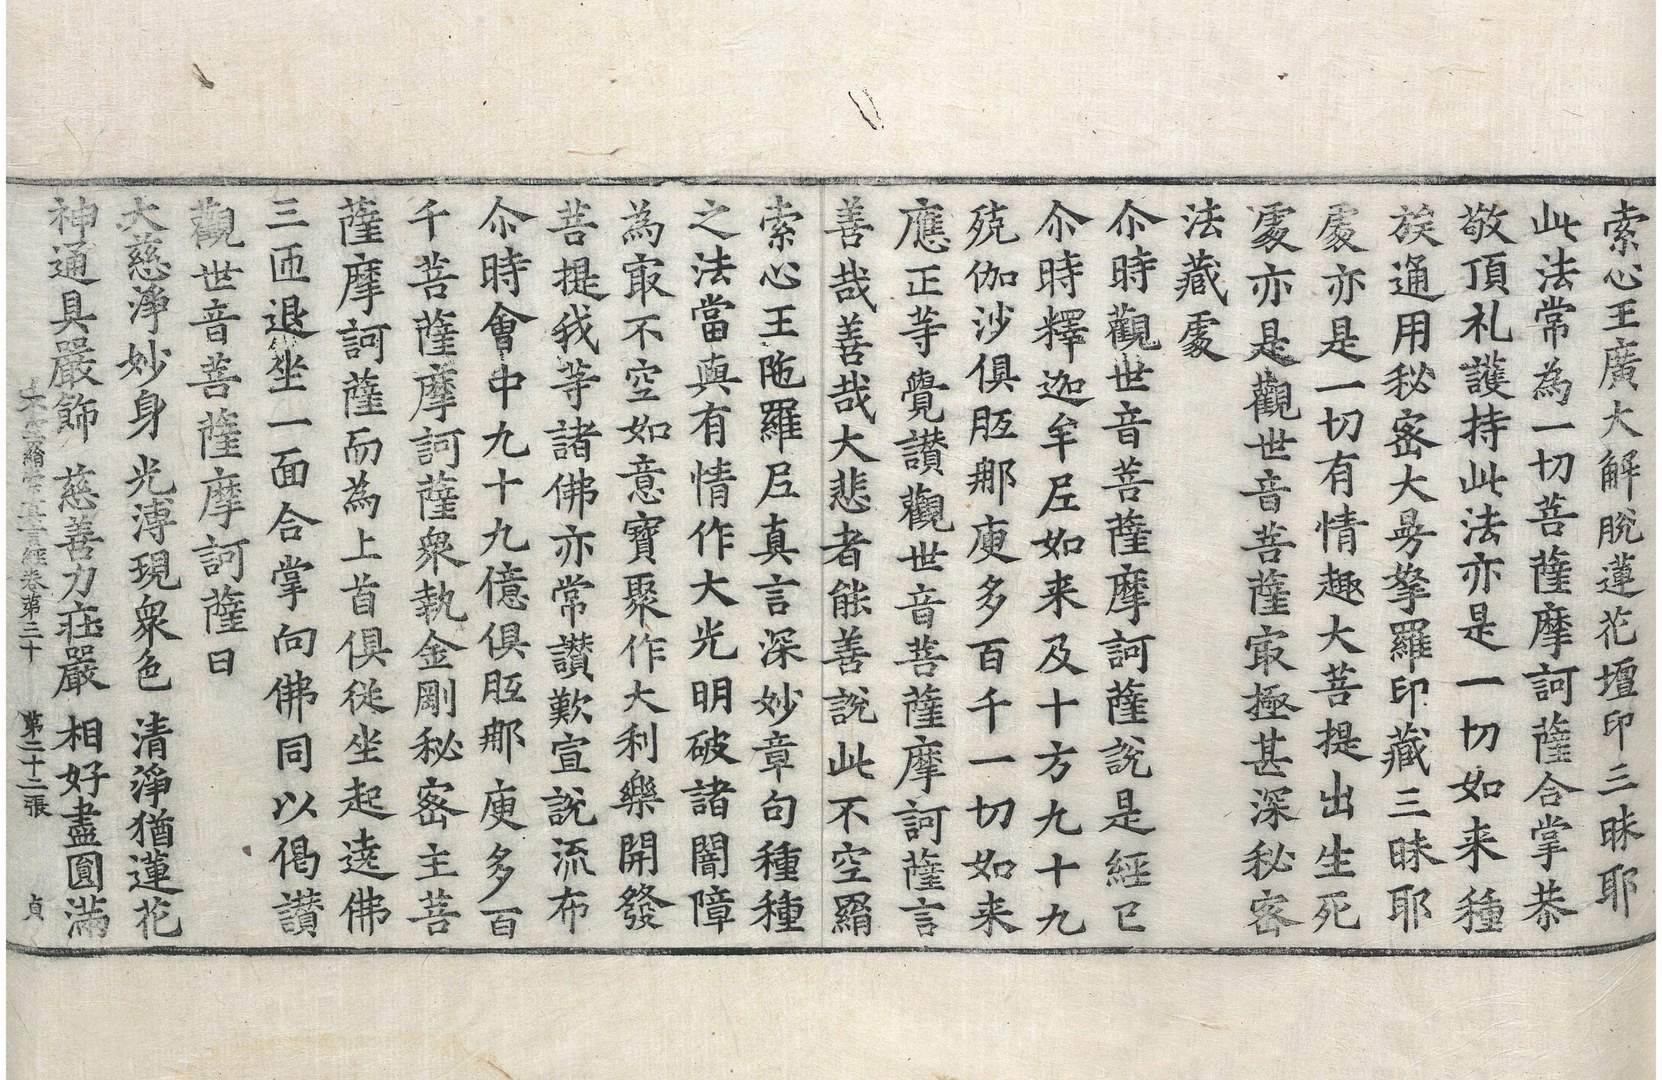 索心王廣大解脫蓮花壇印三昧耶
此法常為一切菩薩摩訶薩合掌恭
敬頂礼護持此法亦是一切如来種
族通用秘密大曼拏羅印藏三昧耶
處亦是一切有情趣大菩提出生死
處亦是觀世音菩薩㝡極甚深秘密
法藏處
尒時觀世音菩薩摩訶薩說是經已
尒時釋迦牟𡰱如来及十方九十九
殑伽沙俱胝那庾多百千一切如来
應正等覺讃觀世音菩薩摩訶薩言
善哉善哉大悲者能善說此不空羂
索心王陁羅𡰱真言深妙章句種種
之法當與有情作大光明破諸闇障
為㝡不空如意寶聚作大利樂開發
菩提我等諸佛亦常讃歎宣說流布
尒時會中九十九億俱胝那庾多百
千菩薩摩訶薩衆執金剛秘密主菩
薩摩訶薩而為上首俱從坐起遶佛
三匝退坐一面合掌向佛同以偈讃
觀世音菩薩摩訶薩曰
大慈淨妙身　光漙現衆色　清淨猶蓮花
神通具嚴飾　慈善力莊嚴　相好盡圓滿
不空羂索真言經卷第三十　第二十二張　貞